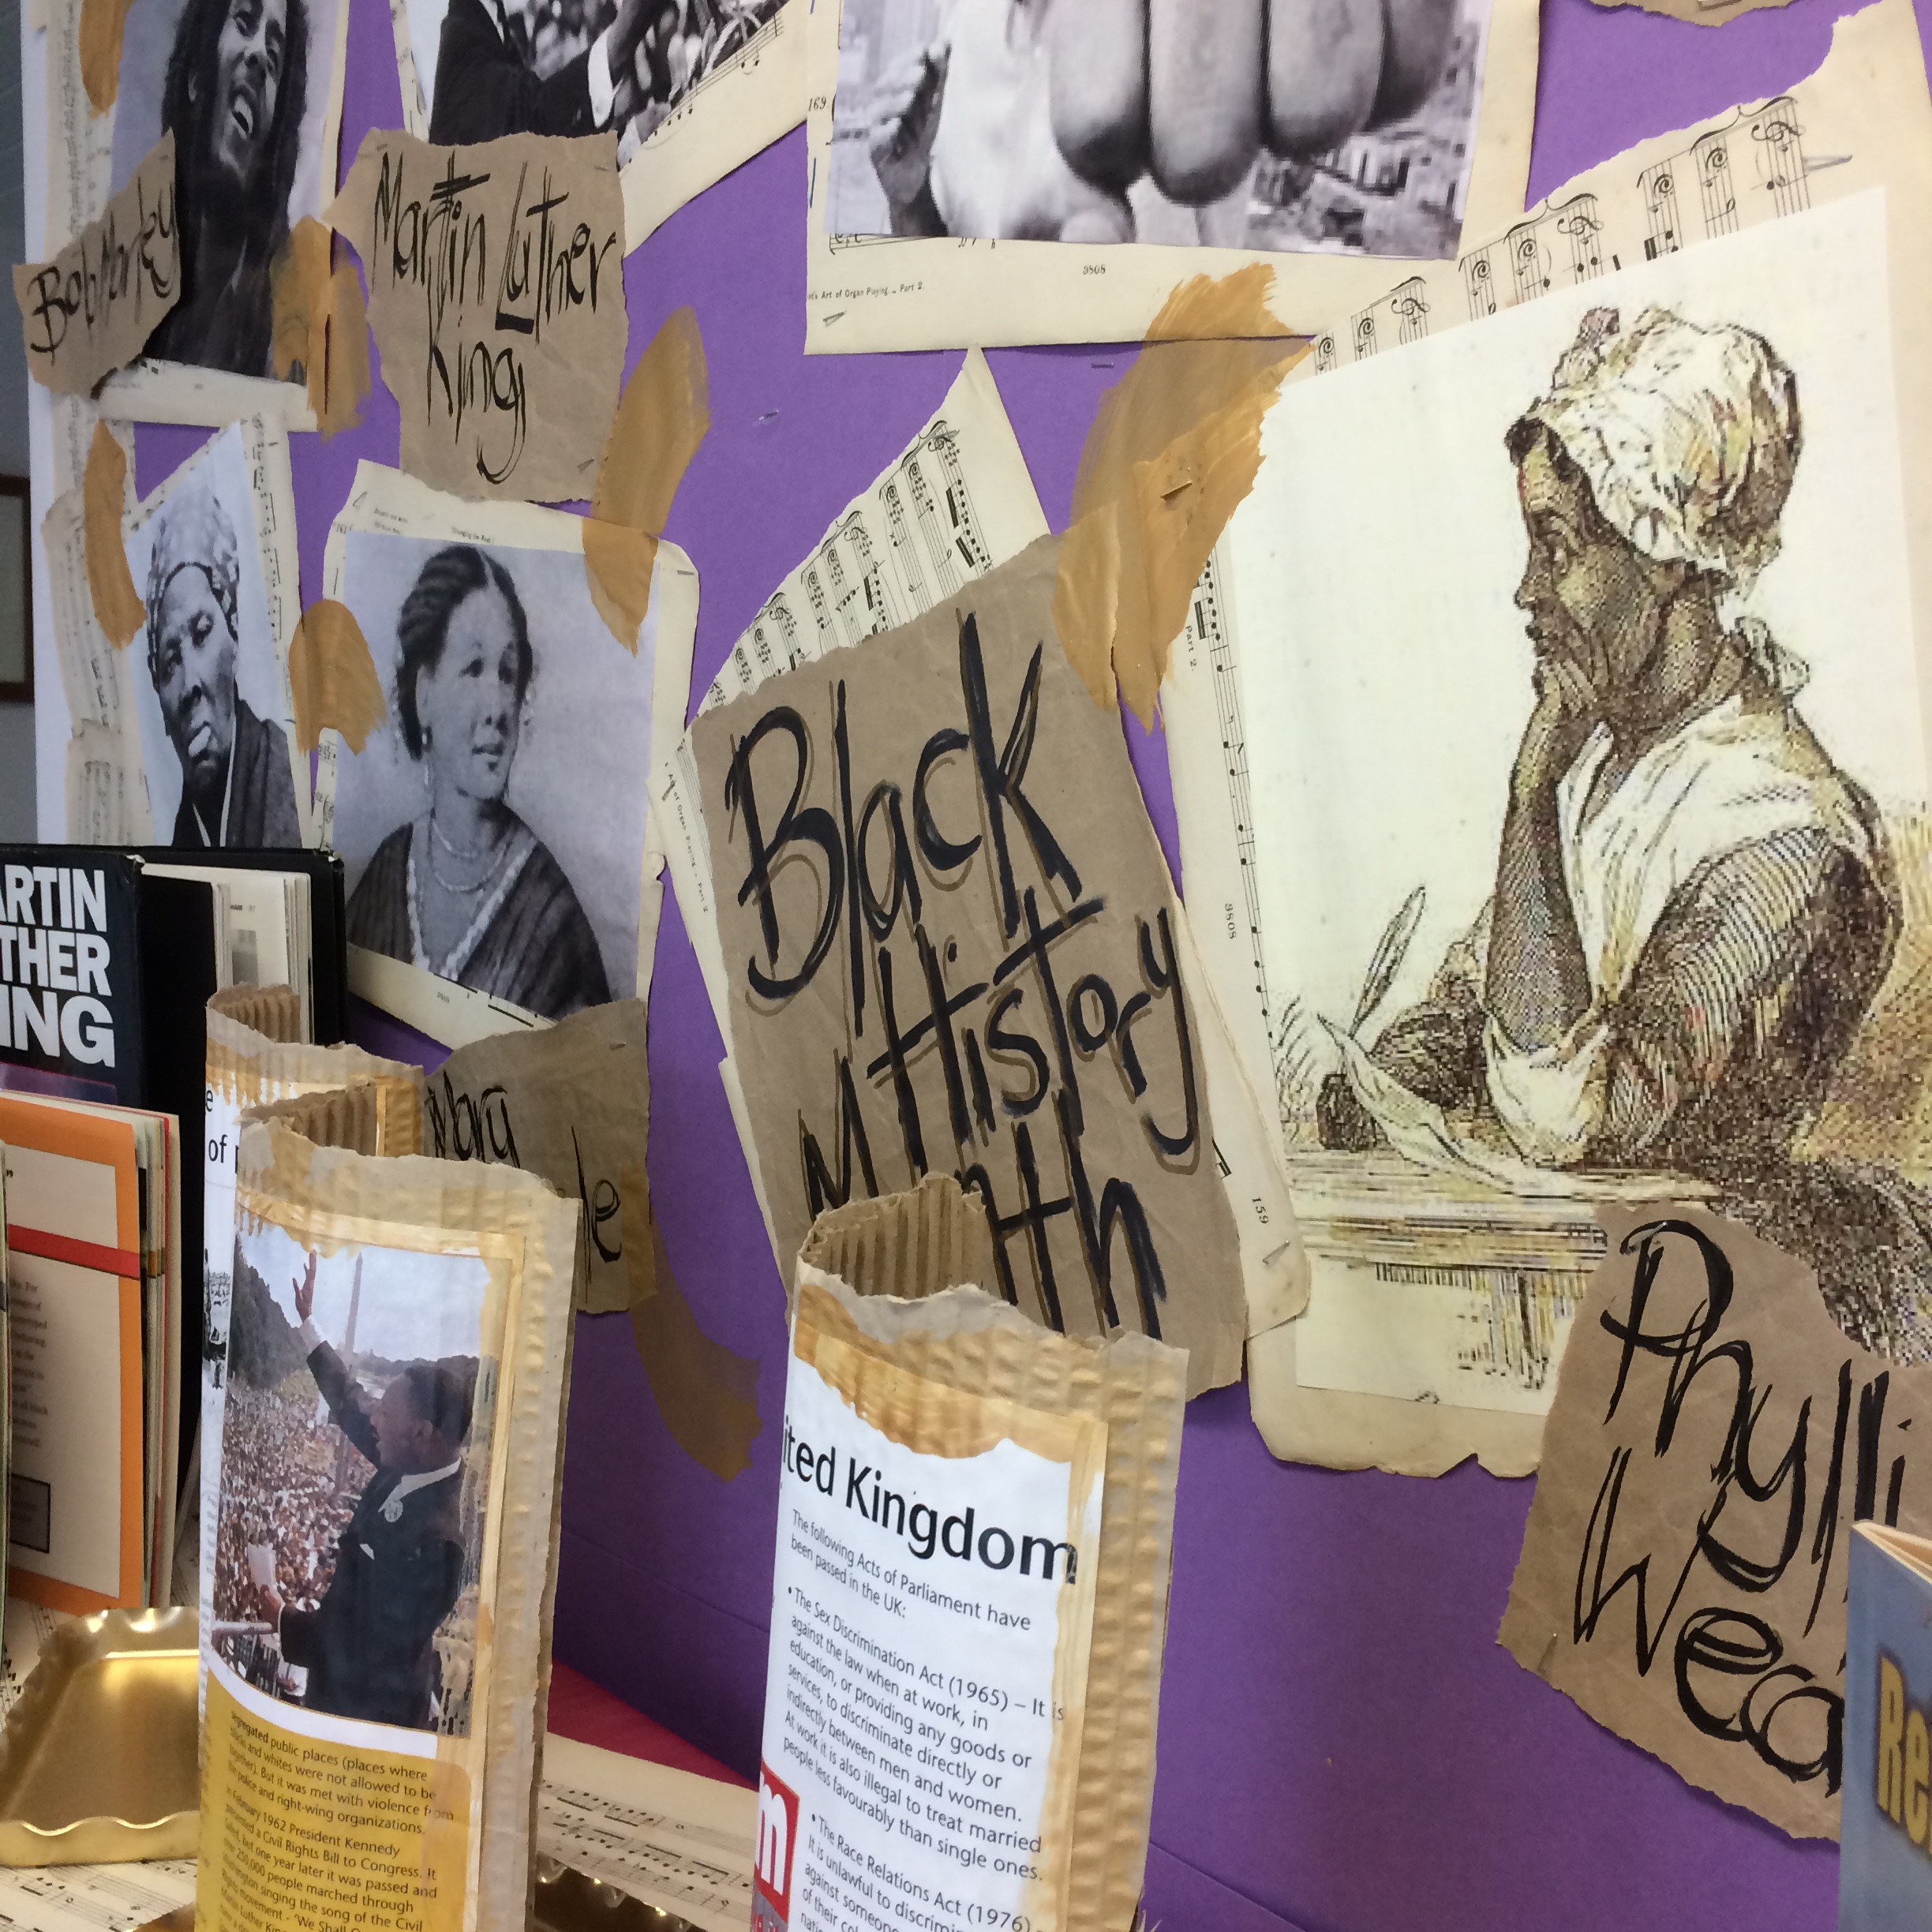 Bob Marley
Martin Luther
King
169
3808
Art of Organ Playing _ Part 2.
Part 2.
3808
159
Black
History
M
nth
Mary
le
Phylli
Wea
ARTIN
THER
ING
e
of
ited Kingdom
The following Acts of Parliament have
been passed in the UK:
• The Sex Discrimination Act (1965) – It is
against the law when at work, in
education, or providing any goods or
services, to discriminate directly or
indirectly between men and women.
At work it is also illegal to treat married
people less favourably than single ones.
• The Race Relations Act (1976) –
It is unlawful to discrimin
against someone
of their col
natio
m
segregated public places (places where
blacks and whites were not allowed to be
together). But it was met with violence from
the police and right-wing organizations.
In February 1962 President Kennedy
presented a Civil Rights Bill to Congress. It
failed, but one year later it was passed and
over 250,000 people marched through
Washington singing the song of the Civil
Rights movement - "We Shall O
Martin Luther King
Re